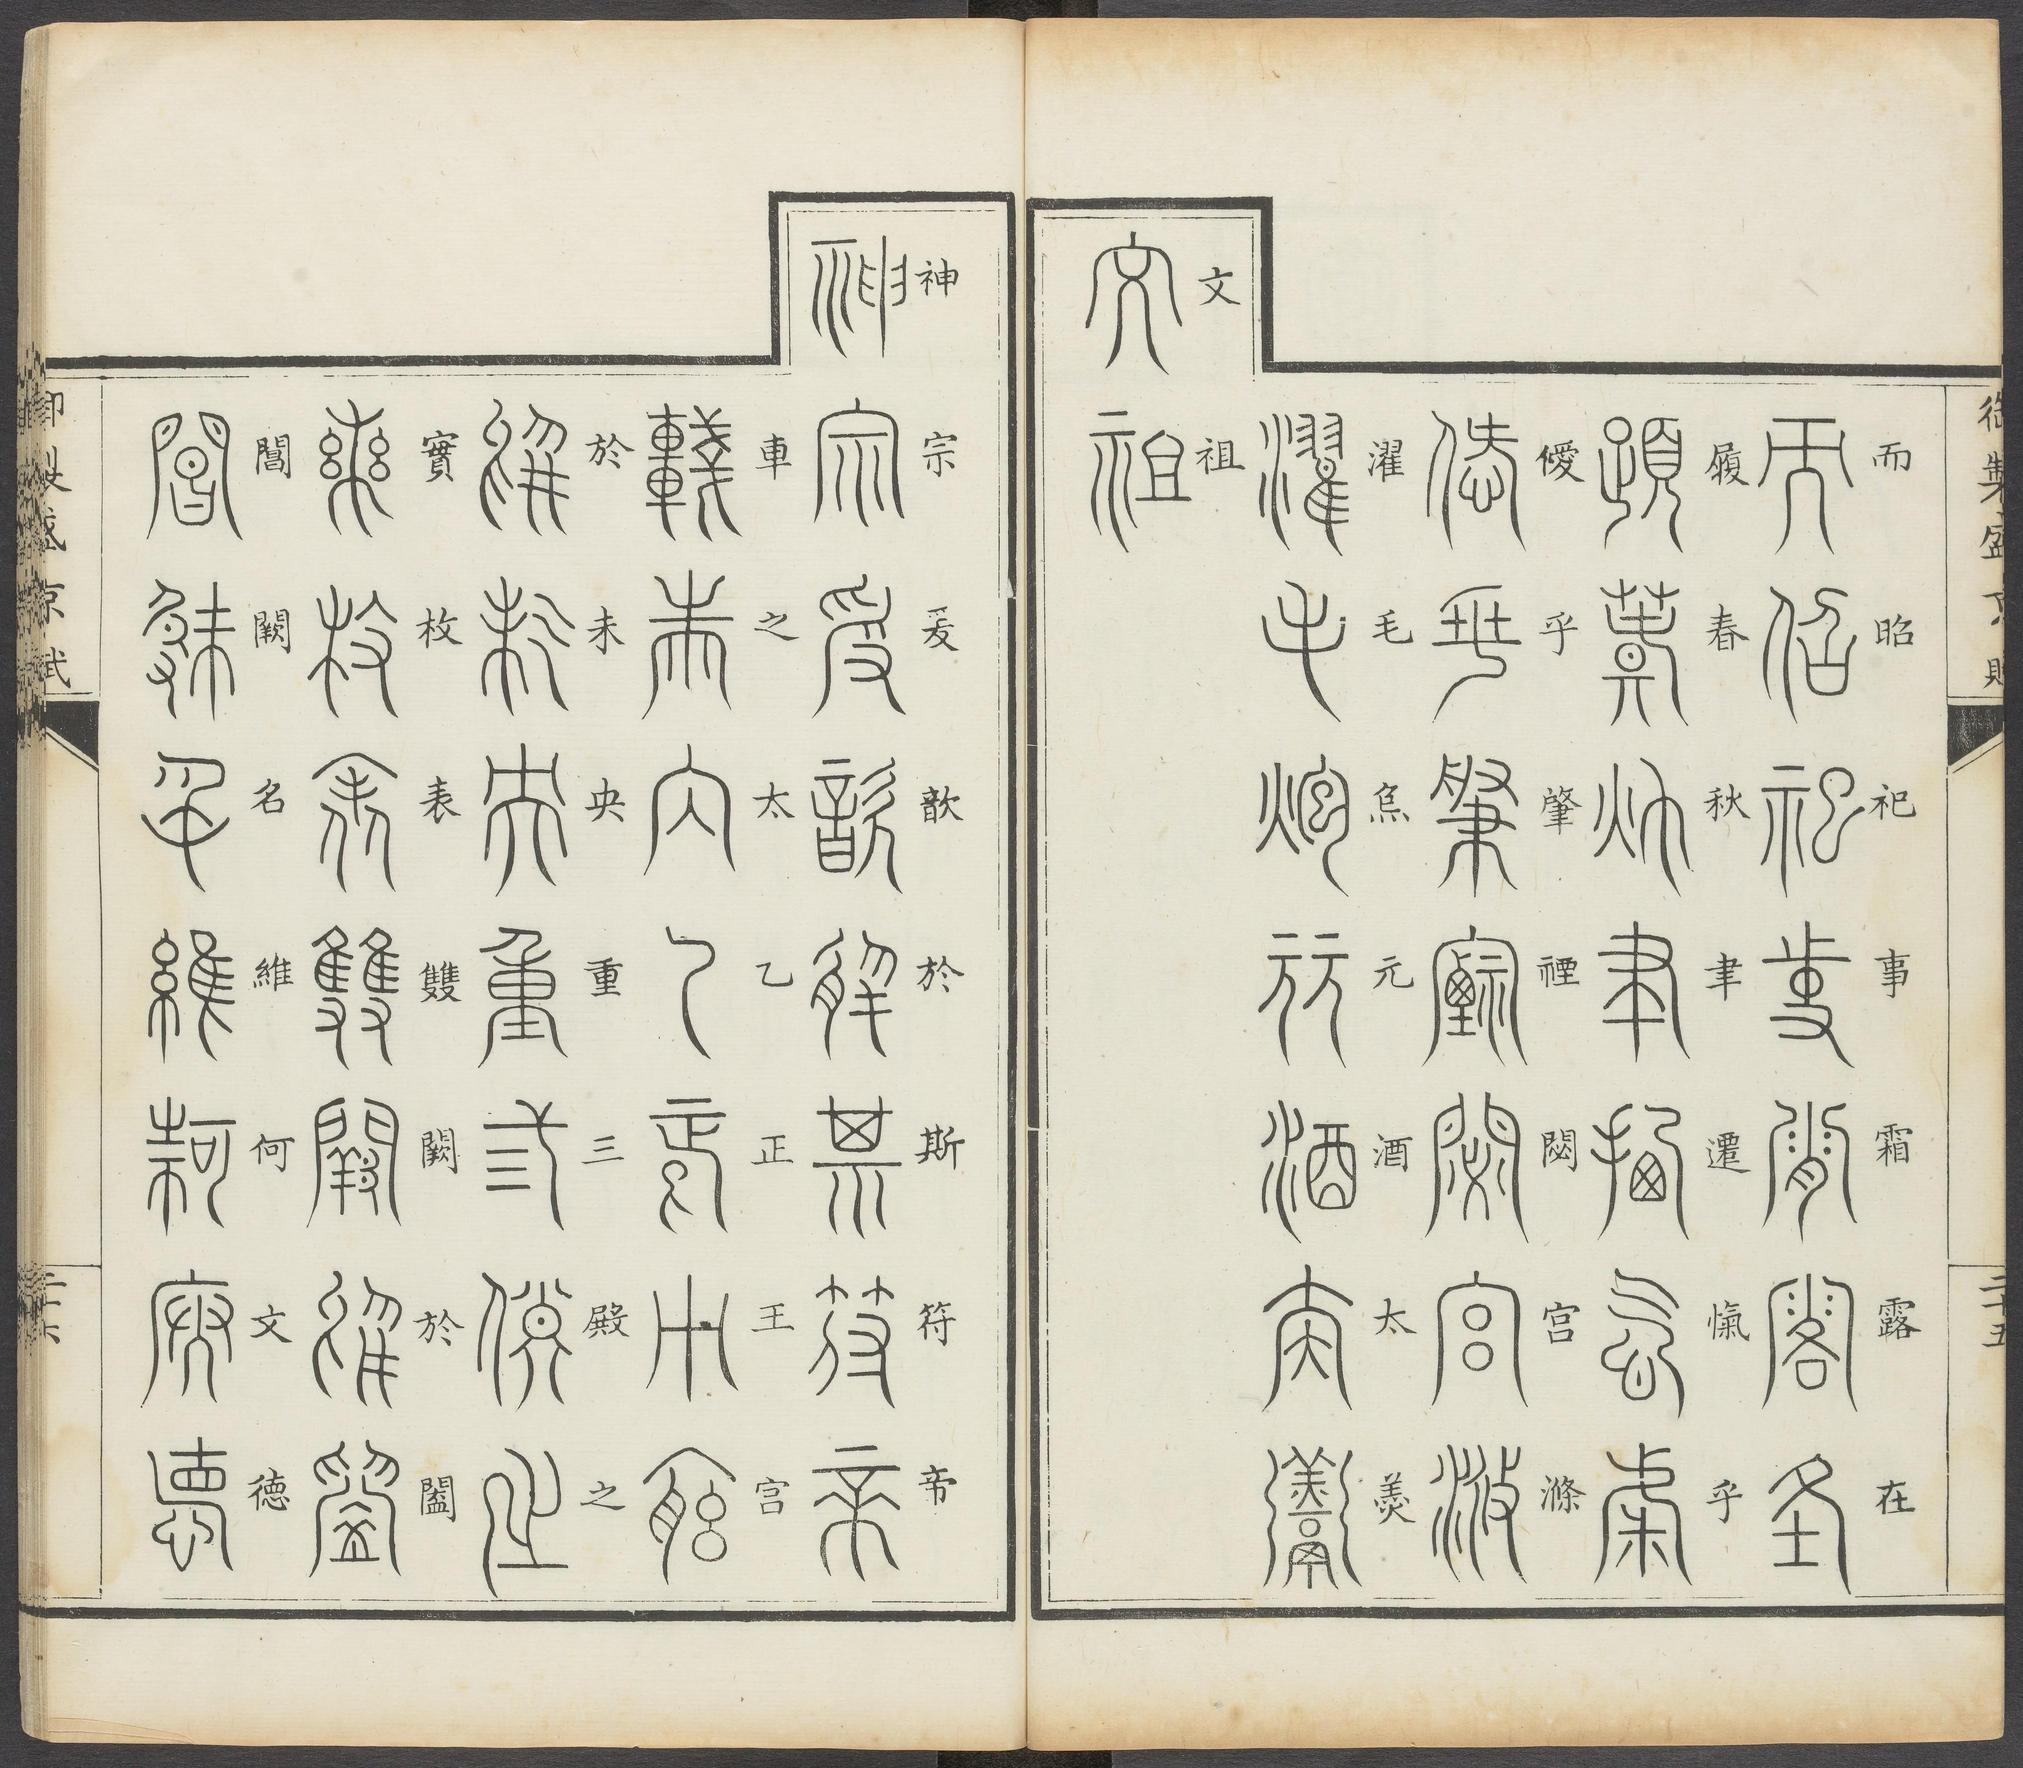 御製盛京賦
二十五
而昭祀事霜露在
履春秋聿遷愾乎
僾乎肇禋閟宫滌
濯毛炰元酒太羮
文祖
神宗爰歆於斯符帝
車之太乙正王宫
於未央重三殿之
實枚表雙闕於闔
閶闕名維何文德
御製盛京賦
二十六